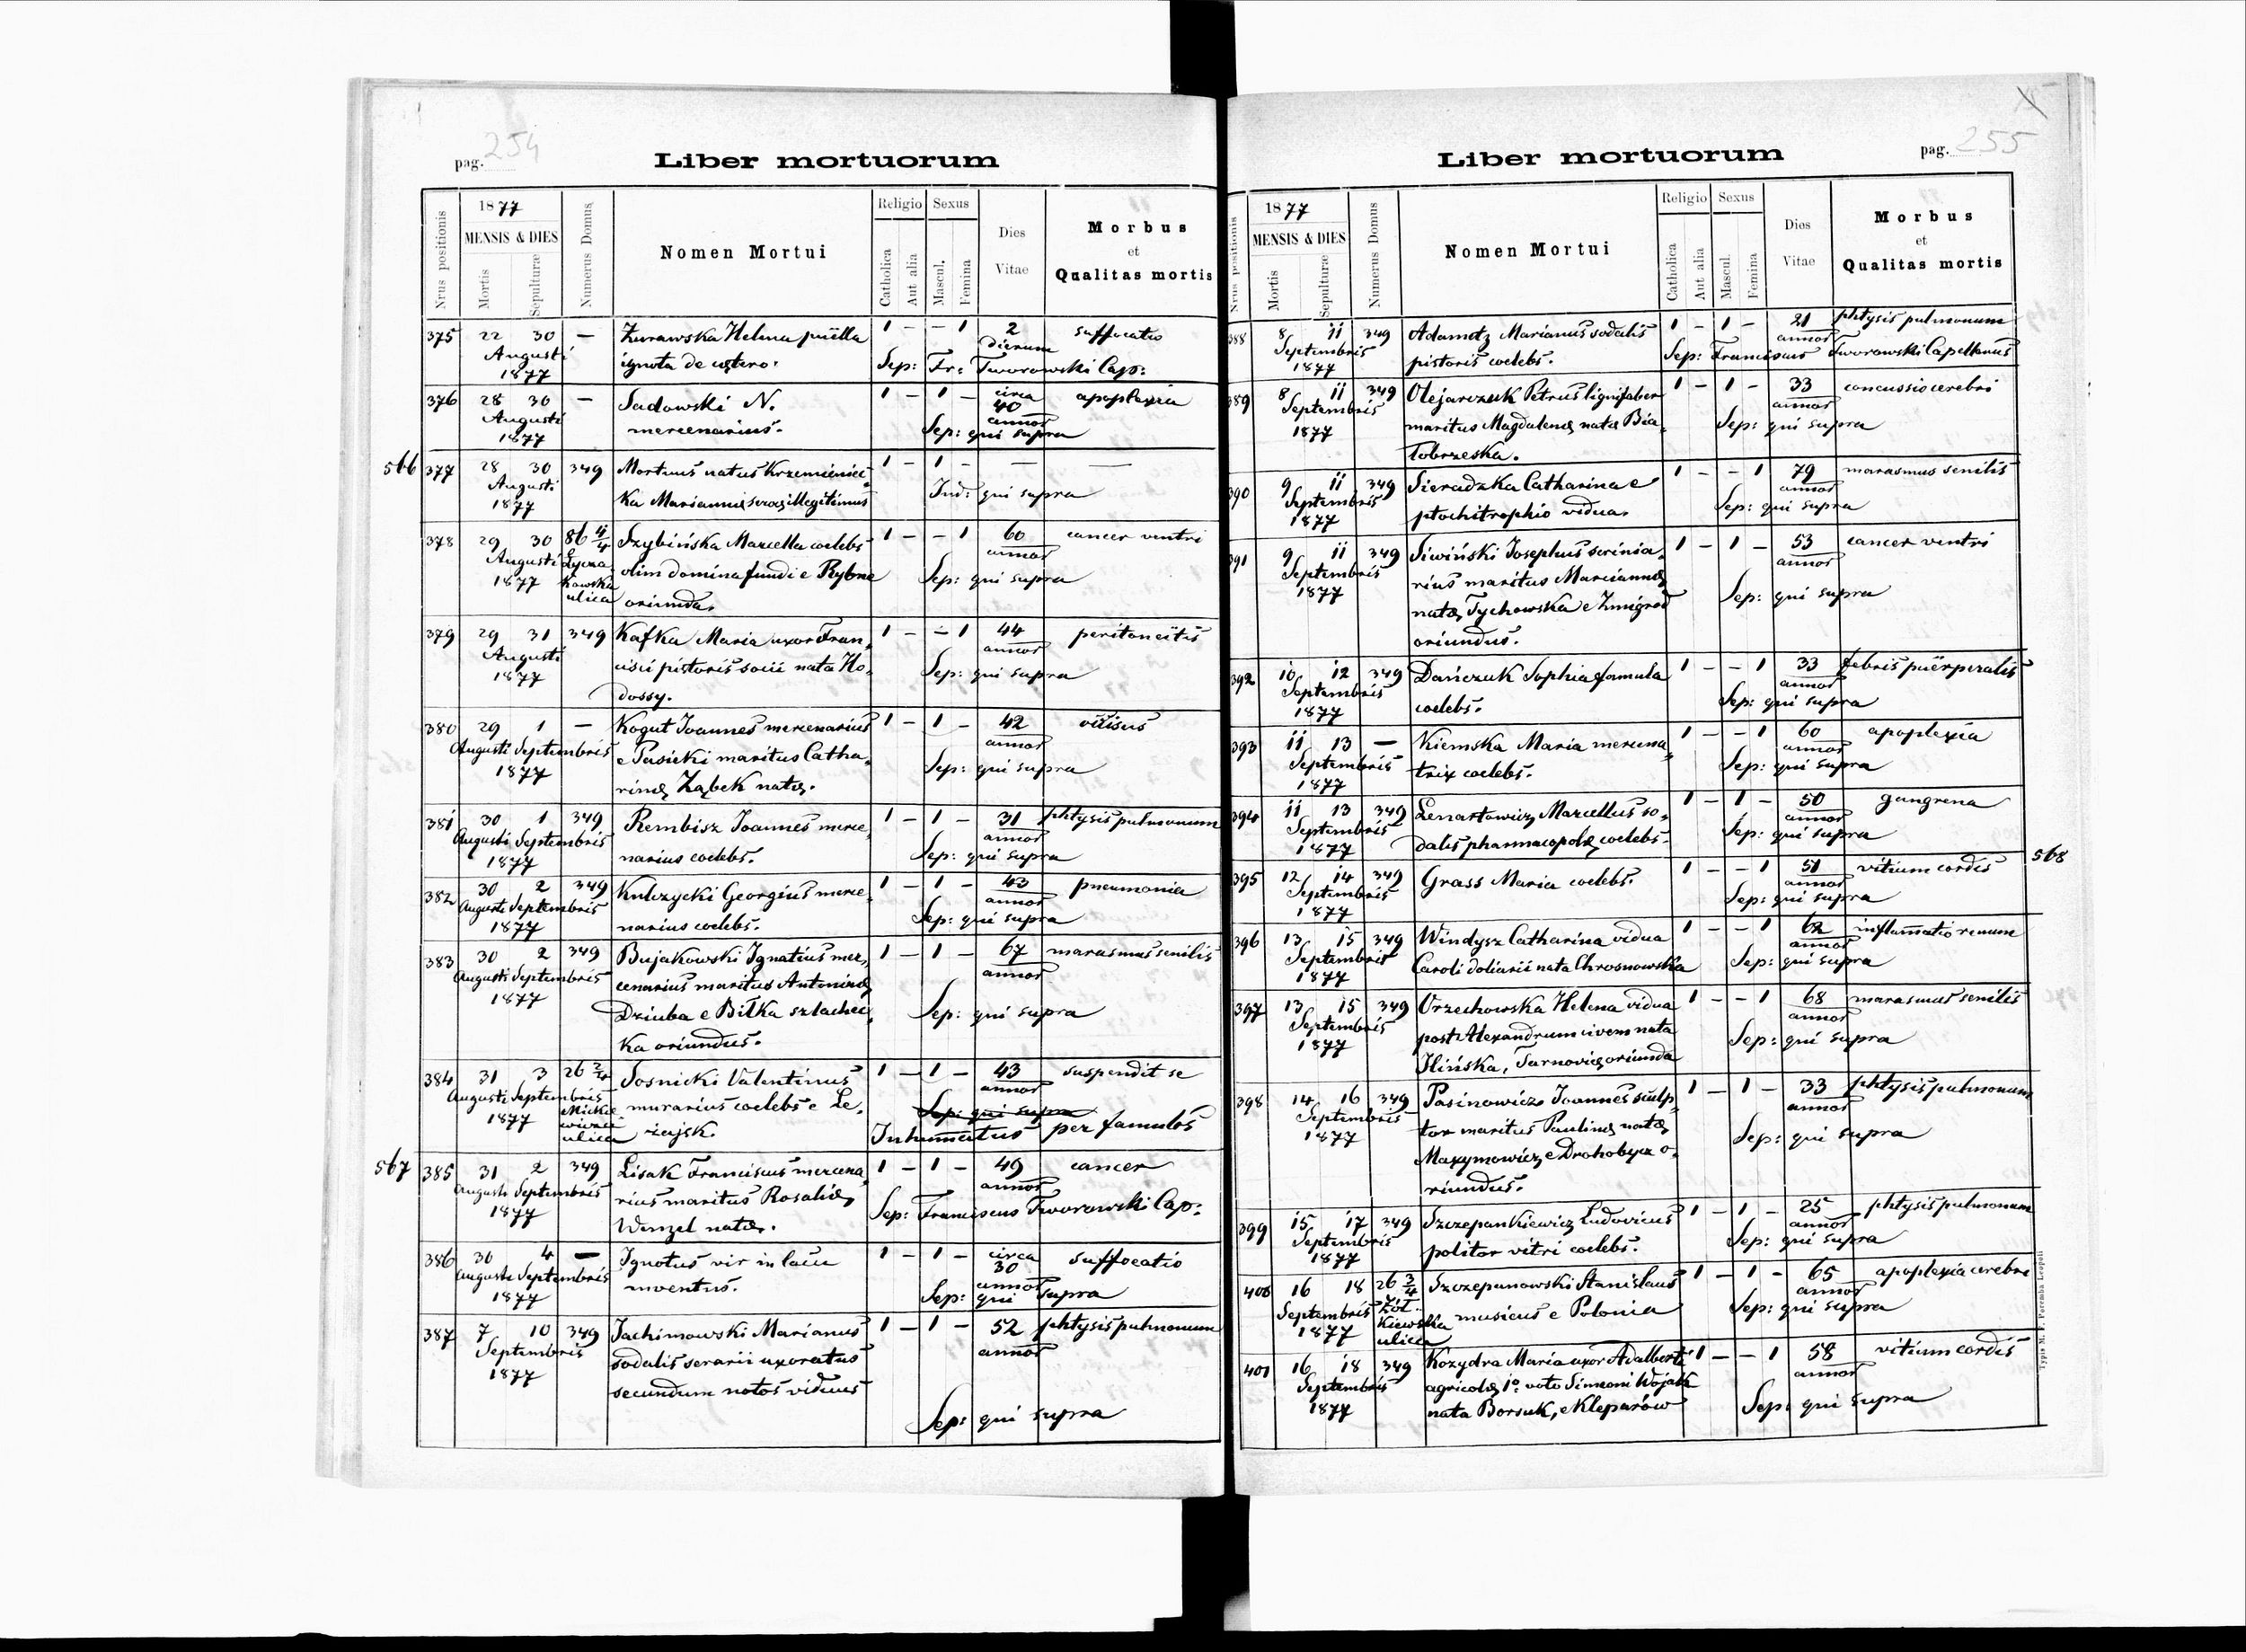 pag. 254
Liber mortuorum
Nrus positionis
1877
MENSIS & DIES
Mortis
Sepulturæ
Numerus Domus
Nomen Mortui
Religio
Catholica
Aut alia
Sexus
Mascul.
Femina
Dies
Vitae
Morbus
et
Qualitas mortis
375 22 30 — Żurawska Helena puëlla 1 – – 1 2 suffocatio
Augusti ignota de cętero. dierum
1877 Sep: Fr: Tworowski Cap:
376 28 30 — Sadowski N. 1 – 1 – circa 40 apoplexia
Augusti mercenarius. annor
1877 Sep: qui supra
566
377 28 30 349 Mortuus natus Krzemieniec- 1 – 1 – — —
Augusti ka Mariannę servę illegitimus Ind: qui supra
1877
378 29 30 86 4/4 Szybińska Marcella coelebs 1 – – 1 60 cancer ventri
Augusti Łycza- olim domina fundi e Rybne annor
1877 kowska oriunda. Sep: qui supra
ulica
379 29 31 349 Kafka Maria uxor Fran- 1 – – 1 44 peritoneïtis
Augusti cisci pistoris socii nata Ho- annor
1877 dossy. Sep: qui supra
380 29 1 — Kogut Joannes mercenarius 1 – 1 – 42
Augusti Septembris e Pasieki maritus Catha- annor
1877 rinę Ząbek natę. Sep: qui supra
381 30 1 349 Rembisz Joannes merce- 1 – 1 – 31 phtysis pulmonum
Augusti Septembris narius coelebs. annor
1877 Sep: qui supra
382 30 2 349 Kulczycki Georgius merce- 1 – 1 – 43 pneumonia
Augusti Septembris narius coelebs. annor
1877 Sep: qui supra
383 30 2 349 Bujakowski Ignatius mer- 1 – 1 – 67 marasmus senilis
Augusti Septembris cenarius maritus Antoninę annor
1877 Dziuba e Biłka szlachec- Sep: qui supra
ka oriundus.
384 31 3 26 2/4 Sosnicki Valentinus 1 – 1 – 43 suspendit se
Augusti Septembris murarius coelebs e Le- annor
1877 Mickie- żajsk. Sep: qui supra
wicza Inhumatus per famulos
ulica
567
385 31 2 349 Lisak Franciscus mercena- 1 – 1 – 49 cancer
Augusti Septembris rius maritus Rosalię annor
1877 Wenzel natę. Sep: Franciscus Tworowski Cap:
386 30 4 — Ignotus vir in lacu 1 – 1 – circa 30 suffocatio
Augusti Septembris inventus. annor
1877 Sep: qui supra
387 7 10 349 Jachimowski Marianus 1 – 1 – 52 phtysis pulmonum
Septembris sodalis serarii uxoratus annor
1877 secundum notos viduus
Sep: qui supra
pag. 255
Liber mortuorum
Nrus positionis
1877
MENSIS & DIES
Mortis
Sepulturæ
Numerus Domus
Nomen Mortui
Religio
Catholica
Aut alia
Sexus
Mascul.
Femina
Dies
Vitae
Morbus
et
Qualitas mortis
388 8 11 349 Adametz Marianus sodalis 1 – 1 – 21 phtysis pulmonum
Septembris pistoris coelebs. annor
1877 Sep: Franciscus Tworowski Capellanus
389 8 11 349 Olejarczuk Petrus lignifaber 1 – 1 – 33 concussio cerebri
Septembris maritus Magdalenę natę Bia- annor
1877 łobrzeska. Sep: qui supra
390 9 11 349 Sieradzka Catharina e 1 – – 1 79 marasmus senilis
Septembris ptochitrophio vidua. annor
1877 Sep: qui supra
391 9 11 349 Siwiński Josephus scrinia- 1 – 1 – 53 cancer ventri
Septembris rius maritus Mariannę annor
1877 natę Tychowska e Żmigrod Sep: qui supra
oriundus.
392 10 12 349 Dańczuk Sophia famula 1 – – 1 33 febris puërperalis
Septembris coelebs. annor
1877 Sep: qui supra
393 11 13 — Kiemska Maria mercena- 1 – – 1 60 apoplexia
Septembris trix coelebs. annor
1877 Sep: qui supra
394 11 13 349 Lenartowicz Marcellus so- 1 – 1 – 50 gangrena
Septembris dalis pharmacopolę coelebs. annor
1877 Sep: qui supra
568
395 12 14 349 Grass Maria coelebs. 1 – – 1 51 vitium cordis
Septembris annor
1877 Sep: qui supra
396 13 15 349 Windysz Catharina vidua 1 – – 1 62 inflamatio renum
Septembris Caroli doliarii nata Chrosnowska annor
1877 Sep: qui supra
397 13 15 349 Orzechowska Helena vidua 1 – – 1 68 marasmus senilis
Septembris post Alexandrum civem nata annor
1877 Ilińska, Tarnovię oriunda Sep: qui supra
398 14 16 349 Pasinowicz Joannes sculp- 1 – 1 – 33 phtysis pulmonum
Septembris tor maritus Paulinę natę annor
1877 Maxymowicz e Drohobycz o- Sep: qui supra
riundus.
399 15 17 349 Szczepankiewicz Ludovicus 1 – 1 – 25 phtysis pulmonum
Septembris politor vitri coelebs. annor
1877 Sep: qui supra
400 16 18 26 3/4 Szczepanowski Stanislaus 1 – 1 – 65 apoplexia cerebri
Septembris Żół- musicus e Polonia annor
1877 kiewska Sep: qui supra
ulica
401 16 18 349 Kozydra Maria uxor Adalberti 1 – – 1 58 vitium cordis
Septembris agricolę 1o voto Simeoni Wojak annor
1877 nata Borsuk, e Kleparów Sep: qui supra
Typis M. F. Poremba Leopoli